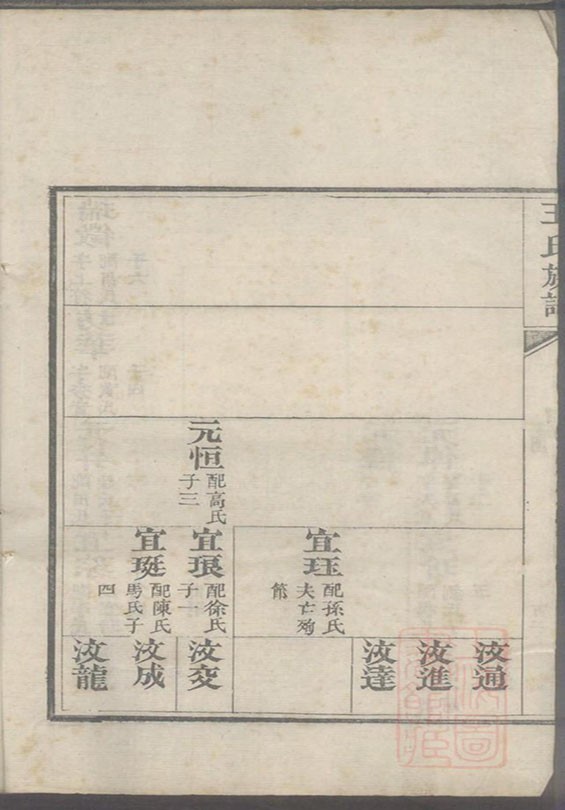 王氏族譜
元恒
配高氏
子三
宜珏
配孫氏
夫亡殉
節
宜珢
配徐氏
子一
宜珽
配陳氏
馬氏子
四
汝通
汝進
汝達
汝交
汝成
汝龍